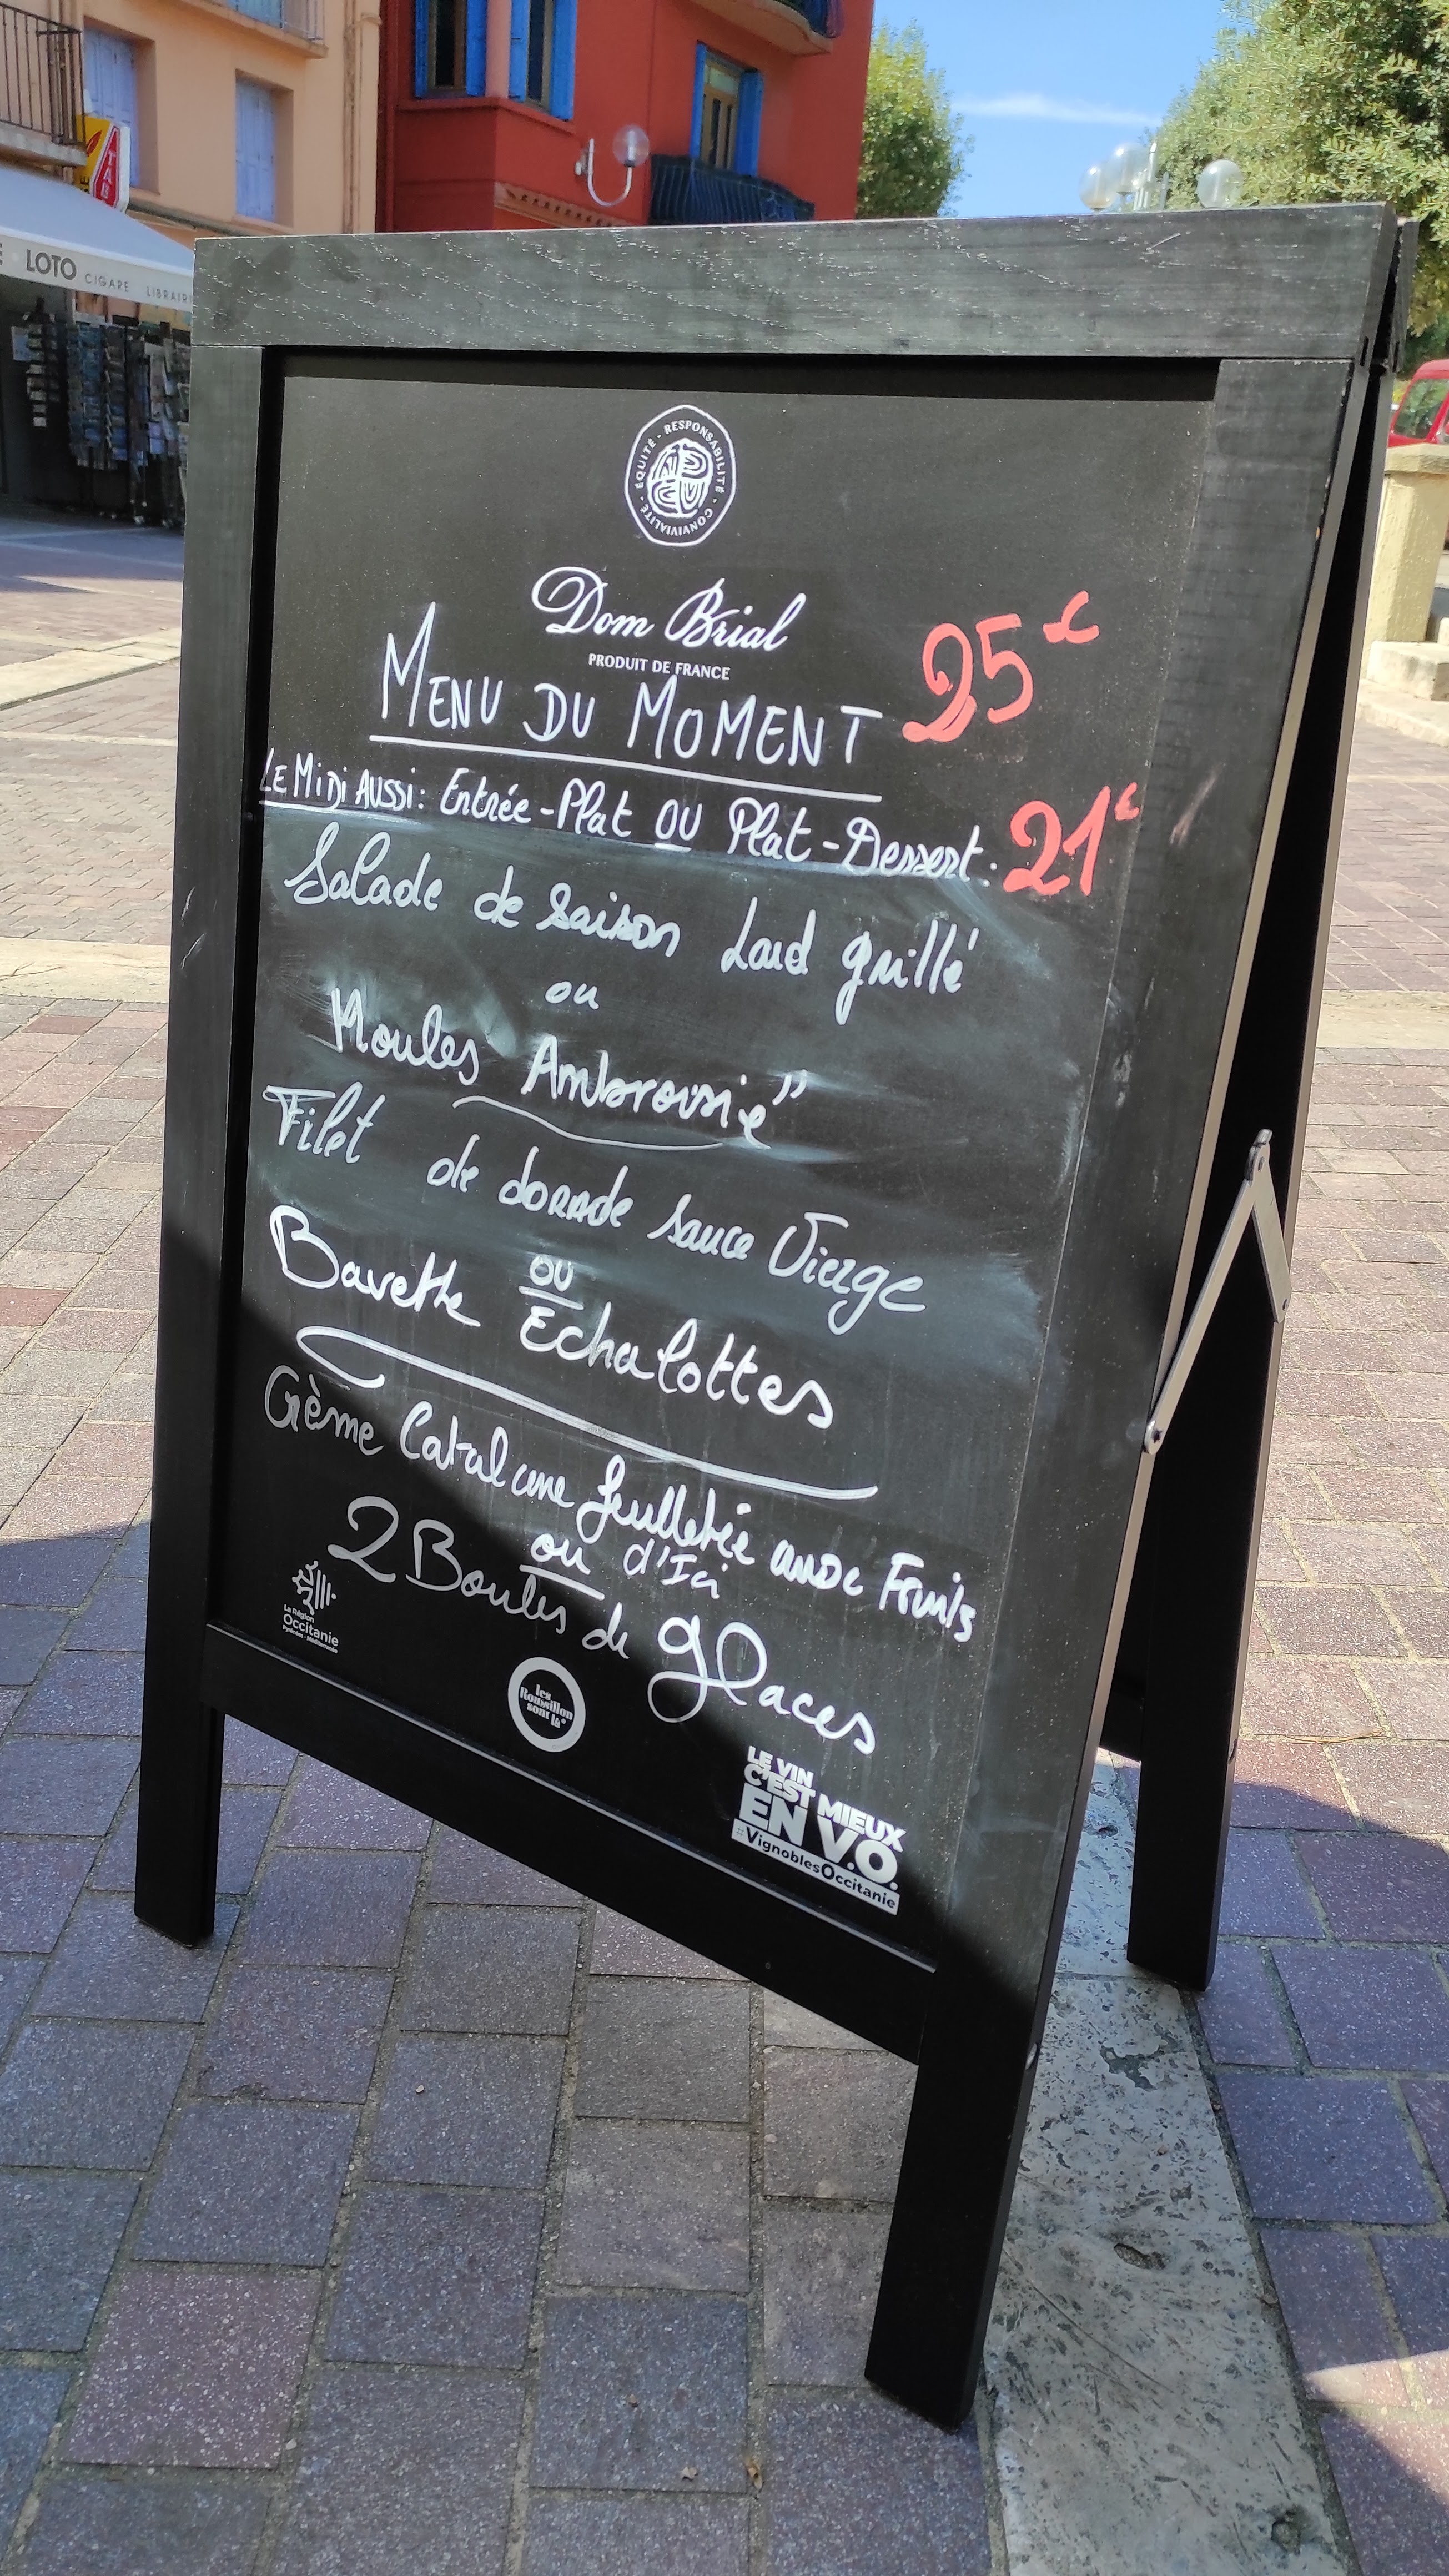 TAB
LOTO CIGARE LIBRAIRI
ÉQUITÉ - RESPONSABILITÉ - CONVIVIALITÉ -
Dom Brial
PRODUIT DE FRANCE
MENU DU MOMENT 25€
LE MiDi AUSSi : Entrée - Plat OU Plat - Dessert : 21€
Salade de saison Lard grillé
ou
Moules Ambroisie"
Filet de dorade sauce Vierge
OU
Bavette Echalottes
Crème Catalane feuilletée avec Fruits
d'Ici
ou
2 Boules de glaces
La Région
Occitanie
Pyrénées - Méditerranée
les
Roussillon
sont là
LE VIN
C'EST MIEUX
EN V.O.
#VignoblesOccitanie